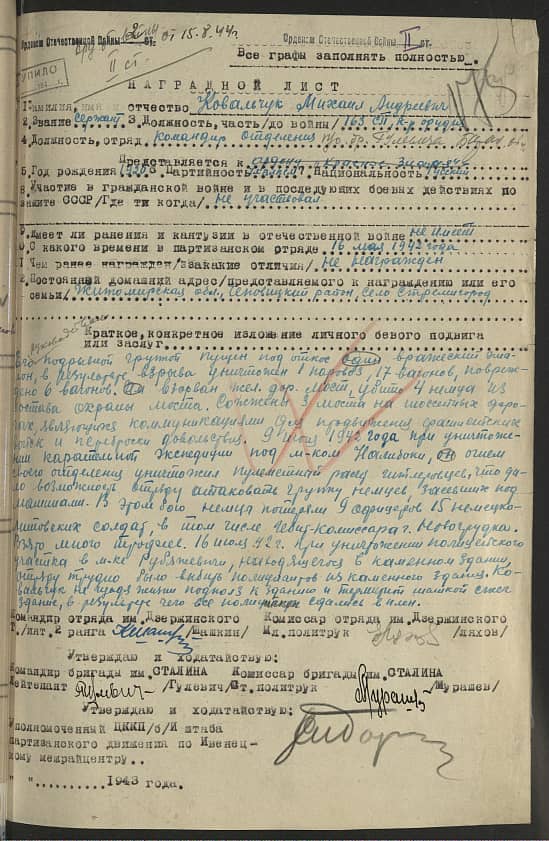 Орденом Отечественной Войны 2 ст.
от 15.8.44г.
Орденом Отечественной Войны II ст.
II ст.
Все графы заполнять полностью.
УПИЛО
НАГРАДНОЙ ЛИСТ
отчество Ковальчук Михаил Андреевич
2. Звание сержант 3. Должность, часть/до войны/ 163 СП, к-р орудия
4. Должность, отряд командир отделения
Представляется к ордену
5. Год рождения 1920 Партийность 7. Национальность русский
8. Участие в гражданской войне и в последующих боевых действиях по
защите СССР/Где ти когда/ не участвовал
Имеет ли ранения и кантузии в отечественной войне не имеет
0. С какого времени в партизанском отряде 16 мая 1942 года
1 Чем ранее награжден/за какие отличия/ не награжден
2. Постоянный домашний адрес/представляемого к награждению или его
семьи/ Житомирская обл., район, село Стремигород
Краткое, конкретное изложение личного бевого подвига
или заслуг.
Его подрывной группой пущен под откос один вражеский эше-
лон, в результате взрыва уничтожен 1 паровоз, 17 вагонов, повреж-
дено 6 вагонов. Он взорван жел. дор. мост, убито 4 немца из
состава охраны моста. Сожжены 3 моста на шоссейных доро-
гах, являющихся коммуникациями для продвижения фашистских
войск и переброски довольствия. 9 июня 1942 года при уничтоже-
нии карательной экспедиции под м-ком Налибоки, он огнем
своего отделения уничтожил пулеметный расч. гитлеровцев, что да-
ло возможность отряду атаковать группу немцев, засевших под
машинами. В этом бою немцы потеряли 9 офицеров 15 немецко-
литовских солдат, в том числе Гебитс-комиссара г. Новогрудка.
Взято много трофеев. 16 июня 42 г. при уничтожении полицейского
участка в м-ке Рубежевичи, находящегося в каменном здании,
отряду трудно было выбить полицаев из каменного здания. Ко-
вальчук не щадя жизни подполз к зданию и термитной шашкой сжег
здание, в результате чего все сдались в плен.
Командир отряда им. Дзержинского Комиссар отряда им. Дзержинского
Т./инт. 2 ранга /Шашкин/ Мл. политрук /ляхов/
Утверждаю и ходатайствую:
Командир бригады им. СТАЛИНА Комиссар бригады им. СТАЛИНА
Лейтенант Гулевич /Гулевич/ Ст. политрук Мурашев /Мурашев/
Утверждаю и ходатайствую:
Уполномоченный ЦККП/б/И штаба
партизанского движения по Ивенец-
кому межрайцентру..
" "..........1943 года.